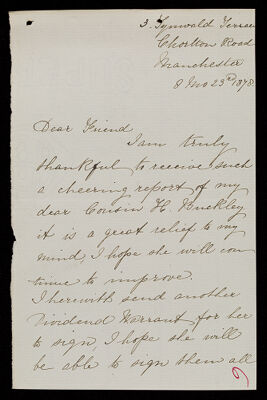 3. Tynwald Terrace
Chorlton Road
Manchester
8 Mo 23rd 1878.
Dear Friend
I am truly
thankful to receive such
a cheering report of my
dear Cousin H. Buckley
it is a great relief to my
mind, I hope she will con
tinue to improve.
I herewith send another
Dividend Warrant for her
to sign, I hope she will
be able to sign them all